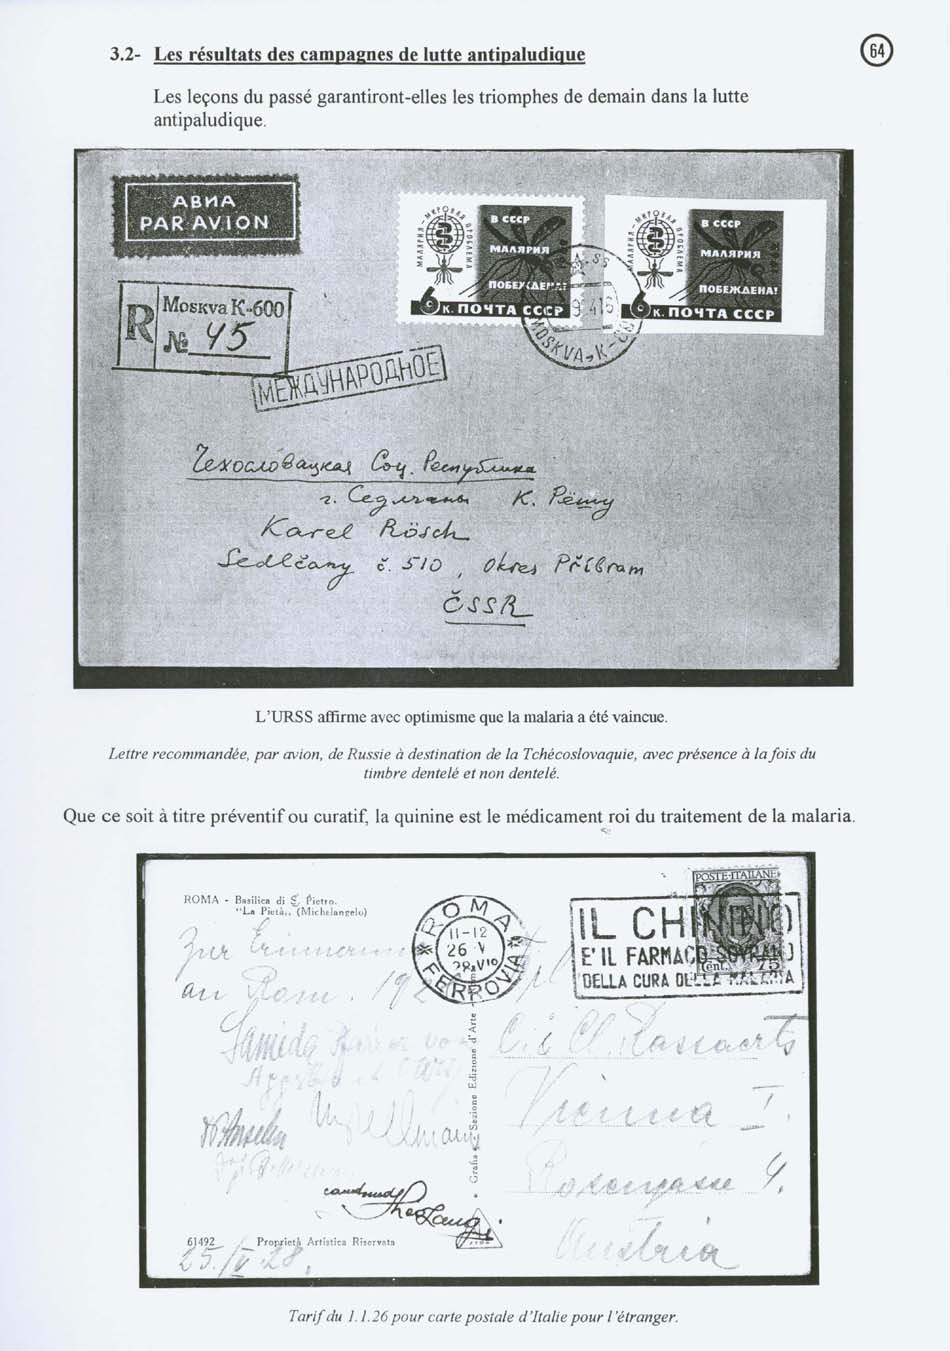 3.2- Les résultats des campagnes de lutte antipaludique
64
Les leçons du passé garantiront-elles les triomphes de demain dans la lutte
antipaludique.
АВИА
PAR AVION
МАЛЯРИЯ-МИРОВАЯ ПРОБЛЕМА
В СССР
МАЛЯРИЯ
ПОБЕЖДЕНА!
6 К. ПОЧТА СССР
МАЛЯРИЯ-МИРОВАЯ ПРОБЛЕМА
В СССР
МАЛЯРИЯ
ПОБЕЖДЕНА!
6 К. ПОЧТА СССР
MOSKVA
R
Moskva K-600
№ 45
МЕЖДУНАРОДНОЕ
Чехословацкая Соц. Республика
г. Седлчаны К. Рёшу
Karel Rösch
Sedlčany č. 510, Okres Příbram
ČSSR
L'URSS affirme avec optimisme que la malaria a été vaincue.
Lettre recommandée, par avion, de Russie à destination de la Tchécoslovaquie, avec présence à la fois du
timbre dentelé et non dentelé.
Que ce soit à titre préventif ou curatif, la quinine est le médicament roi du traitement de la malaria.
ROMA - Basilica di S. Pietro.
"La Pietà,, (Michelangelo)
ROMA
11-12
26 V
FERROVIA
POSTE ITALIANE
Cent. 75
IL CHININO
E' IL FARMACO SOVRANO
DELLA CURA DELLA MALARIA
Zur Erinnerung
an Rom.
Vienna I.
Rosengasse 4.
Austria
Grafia - Sezione Edizione d'Arte
61492 Proprietà Artistica Riservata
25./V 28.
Tarif du 1.1.26 pour carte postale d'Italie pour l'étranger.